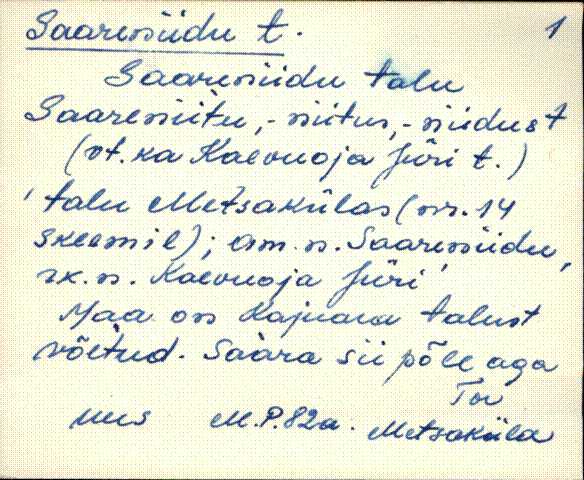 Saareniidu t. 1
Saareniidu talu
Saareniitu, -niitus, -niidust
(vt. ka Kaevuoja Jüri t.)
, talu Metsakülas (nr. 14
skeemil); am. n. Saareniidu,
rk. n. Kaevuoja Jüri
Maa on Kajuara talust
võetud. Saara sii põle aga
Tor
uus M.P. 82a. Metsaküla